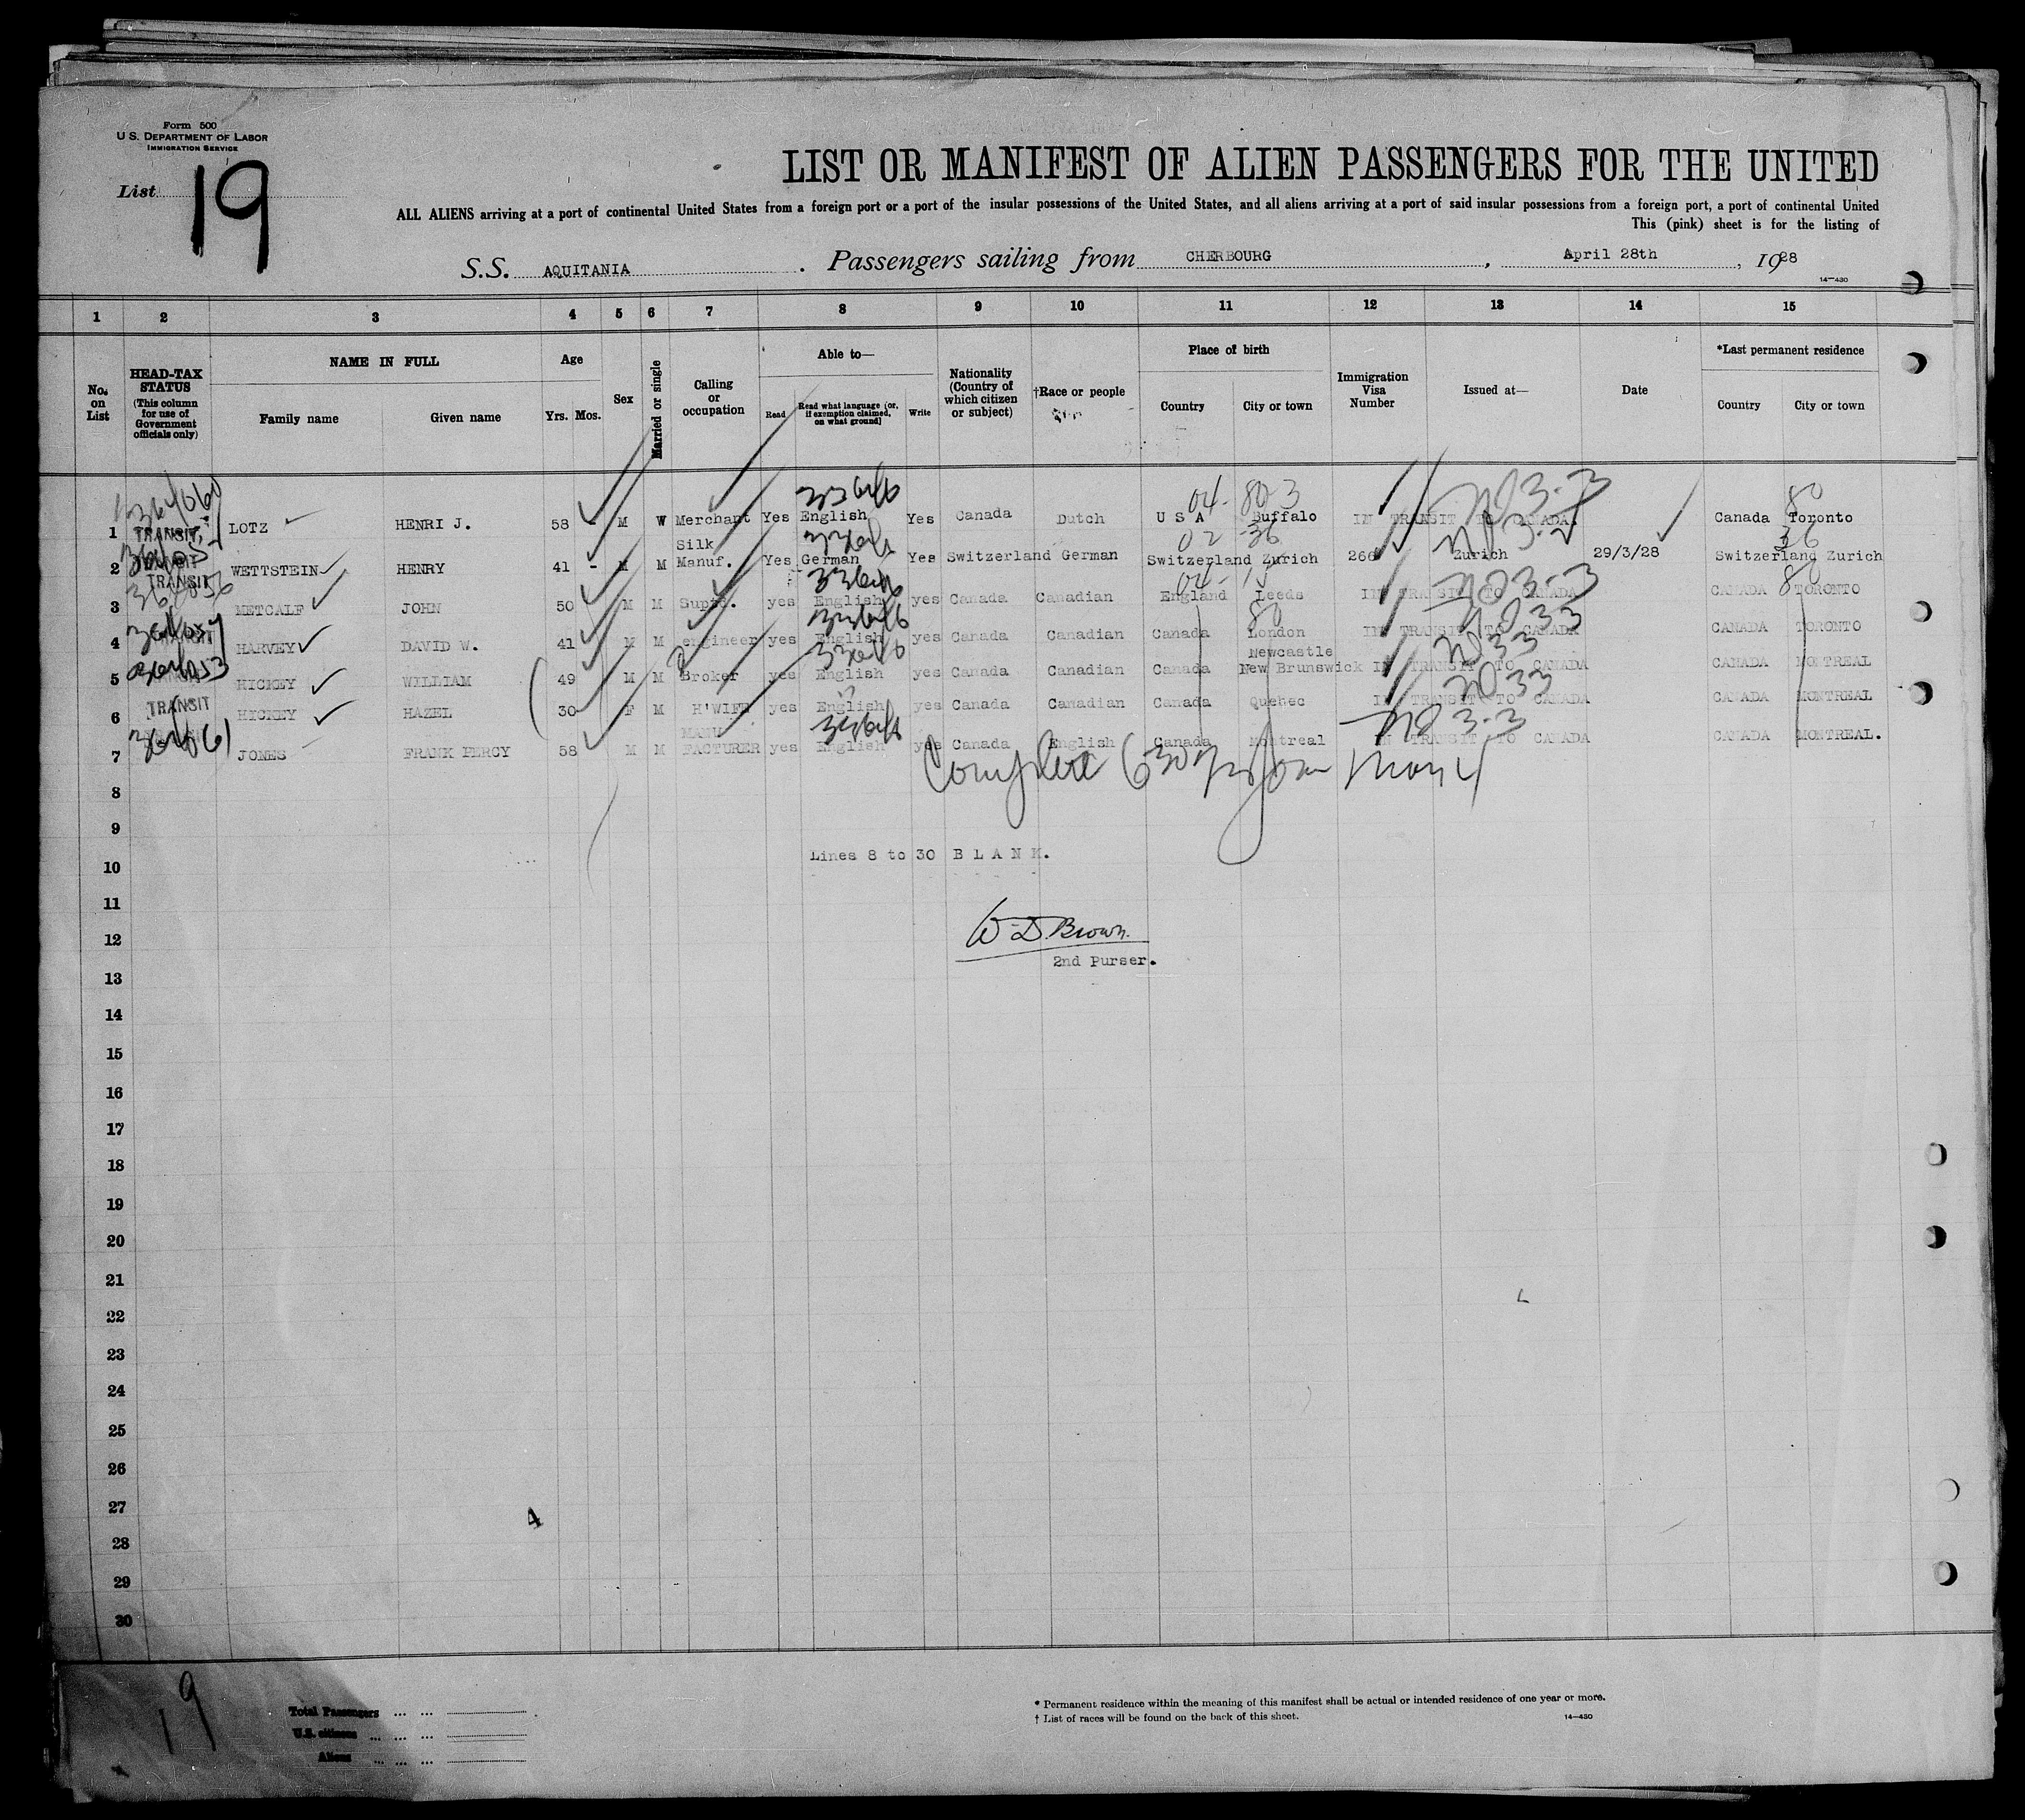 Form 500
U. S. DEPARTMENT OF LABOR
IMMIGRATION SERVICE
List 19
LIST OR MANIFEST OF ALIEN PASSENGERS FOR THE UNITED
ALL ALIENS arriving at a port of continental United States from a foreign port or a port of the insular possessions of the United States, and all aliens arriving at a port of said insular possessions from a foreign port, a port of continental United
This (pink) sheet is for the listing of
S.S. AQUITANIA . Passengers sailing from CHERBOURG , April 28th , 1928
14—430
1 2 3 4 5 6 7 8 9 10 11 12 13 14 15
No. on List
HEAD-TAX STATUS (This column for use of Government officials only)
NAME IN FULL
Family name Given name
Age
Yrs. Mos.
Sex
Married or single
Calling or occupation
Able to—
Read Read what language (or, if exemption claimed, on what ground) Write
Nationality (Country of which citizen or subject)
†Race or people
Place of birth
Country City or town
Immigration Visa Number
Issued at—
Date
*Last permanent residence
Country City or town
1 TRANSIT LOTZ HENRI J. 58 - M W Merchant Yes English Yes Canada Dutch U S A Buffalo IN TRANSIT TO CANADA. Canada Toronto
2 TRANSIT WETTSTEIN HENRY 41 - M M Silk Manuf. Yes German Yes Switzerland German Switzerland Zurich 266 Zurich 29/3/28 Switzerland Zurich
3 METCALF JOHN 50 M M Supt. yes English yes Canada Canadian England Leeds IN TRANSIT TO CANADA CANADA TORONTO
4 HARVEY DAVID W. 41 M M engineer yes English yes Canada Canadian Canada London IN TRANSIT TO CANADA CANADA TORONTO
5 HICKEY WILLIAM 49 M M Broker yes English yes Canada Canadian Canada Newcastle New Brunswick IN TRANSIT TO CANADA CANADA MONTREAL
6 TRANSIT HICKEY HAZEL 30 F M H'WIFE yes English yes Canada Canadian Canada Quebec IN TRANSIT TO CANADA CANADA MONTREAL
7 JONES FRANK PERCY 58 M M MANUFACTURER yes English yes Canada English Canada Montreal IN TRANSIT TO CANADA CANADA MONTREAL.
8
9
Lines 8 to 30 B L A N K.
10
11
12 W D Brown
2nd Purser.
13
14
15
16
17
18
19
20
21
22
23
24
25
26
27
4
28
29
30
19
Total Passengers ... ...
U.S. citizens ... ... ...
Aliens ... ... ...
* Permanent residence within the meaning of this manifest shall be actual or intended residence of one year or more.
† List of races will be found on the back of this sheet.
14—430